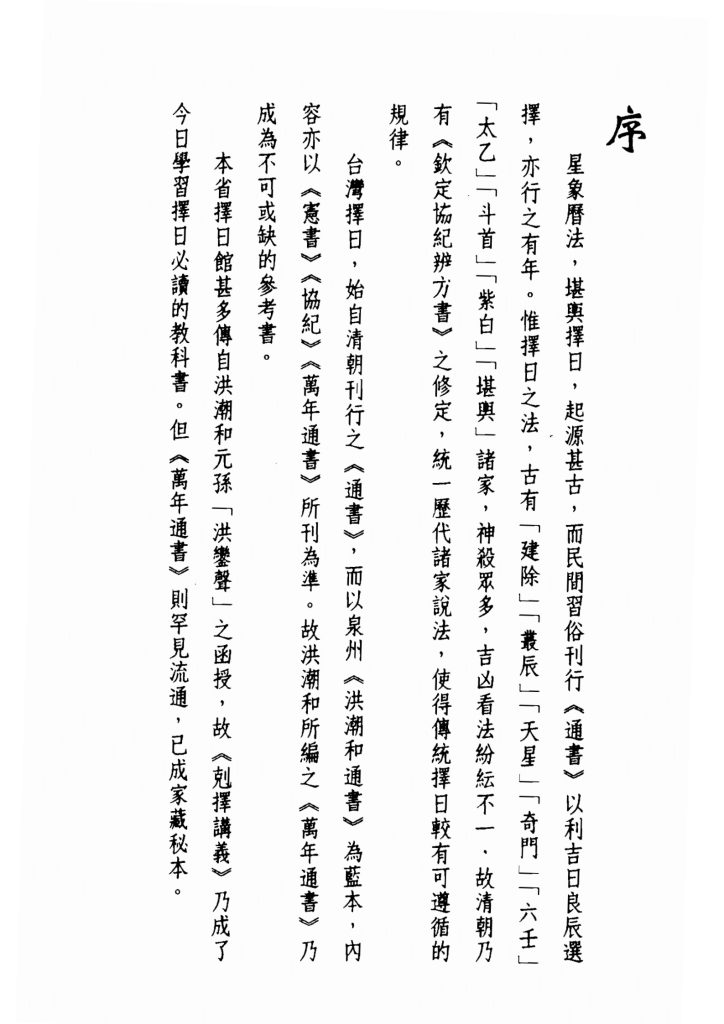 序
星象曆法，堪輿擇日，起源甚古，而民間習俗刊行《通書》以利吉日良辰選
擇，亦行之有年。惟擇日之法，古有「建除」「叢辰」「天星」「奇門」「六壬」
「太乙」「斗首」「紫白」「堪輿」諸家，神殺眾多，吉凶看法紛紜不一．故清朝乃
有《欽定協紀辨方書》之修定，統一歷代諸家說法，使得傳統擇日較有可遵循的
規律。
台灣擇日，始自清朝刊行之《通書》，而以泉州《洪潮和通書》為藍本，內
容亦以《憲書》《協紀》《萬年通書》所刊為準。故洪潮和所編之《萬年通書》乃
成為不可或缺的參考書。
本省擇日館甚多傳自洪潮和元孫「洪鑾聲」之函授，故《剋擇講義》乃成了
今日學習擇日必讀的教科書。但《萬年通書》則罕見流通，已成家藏秘本。